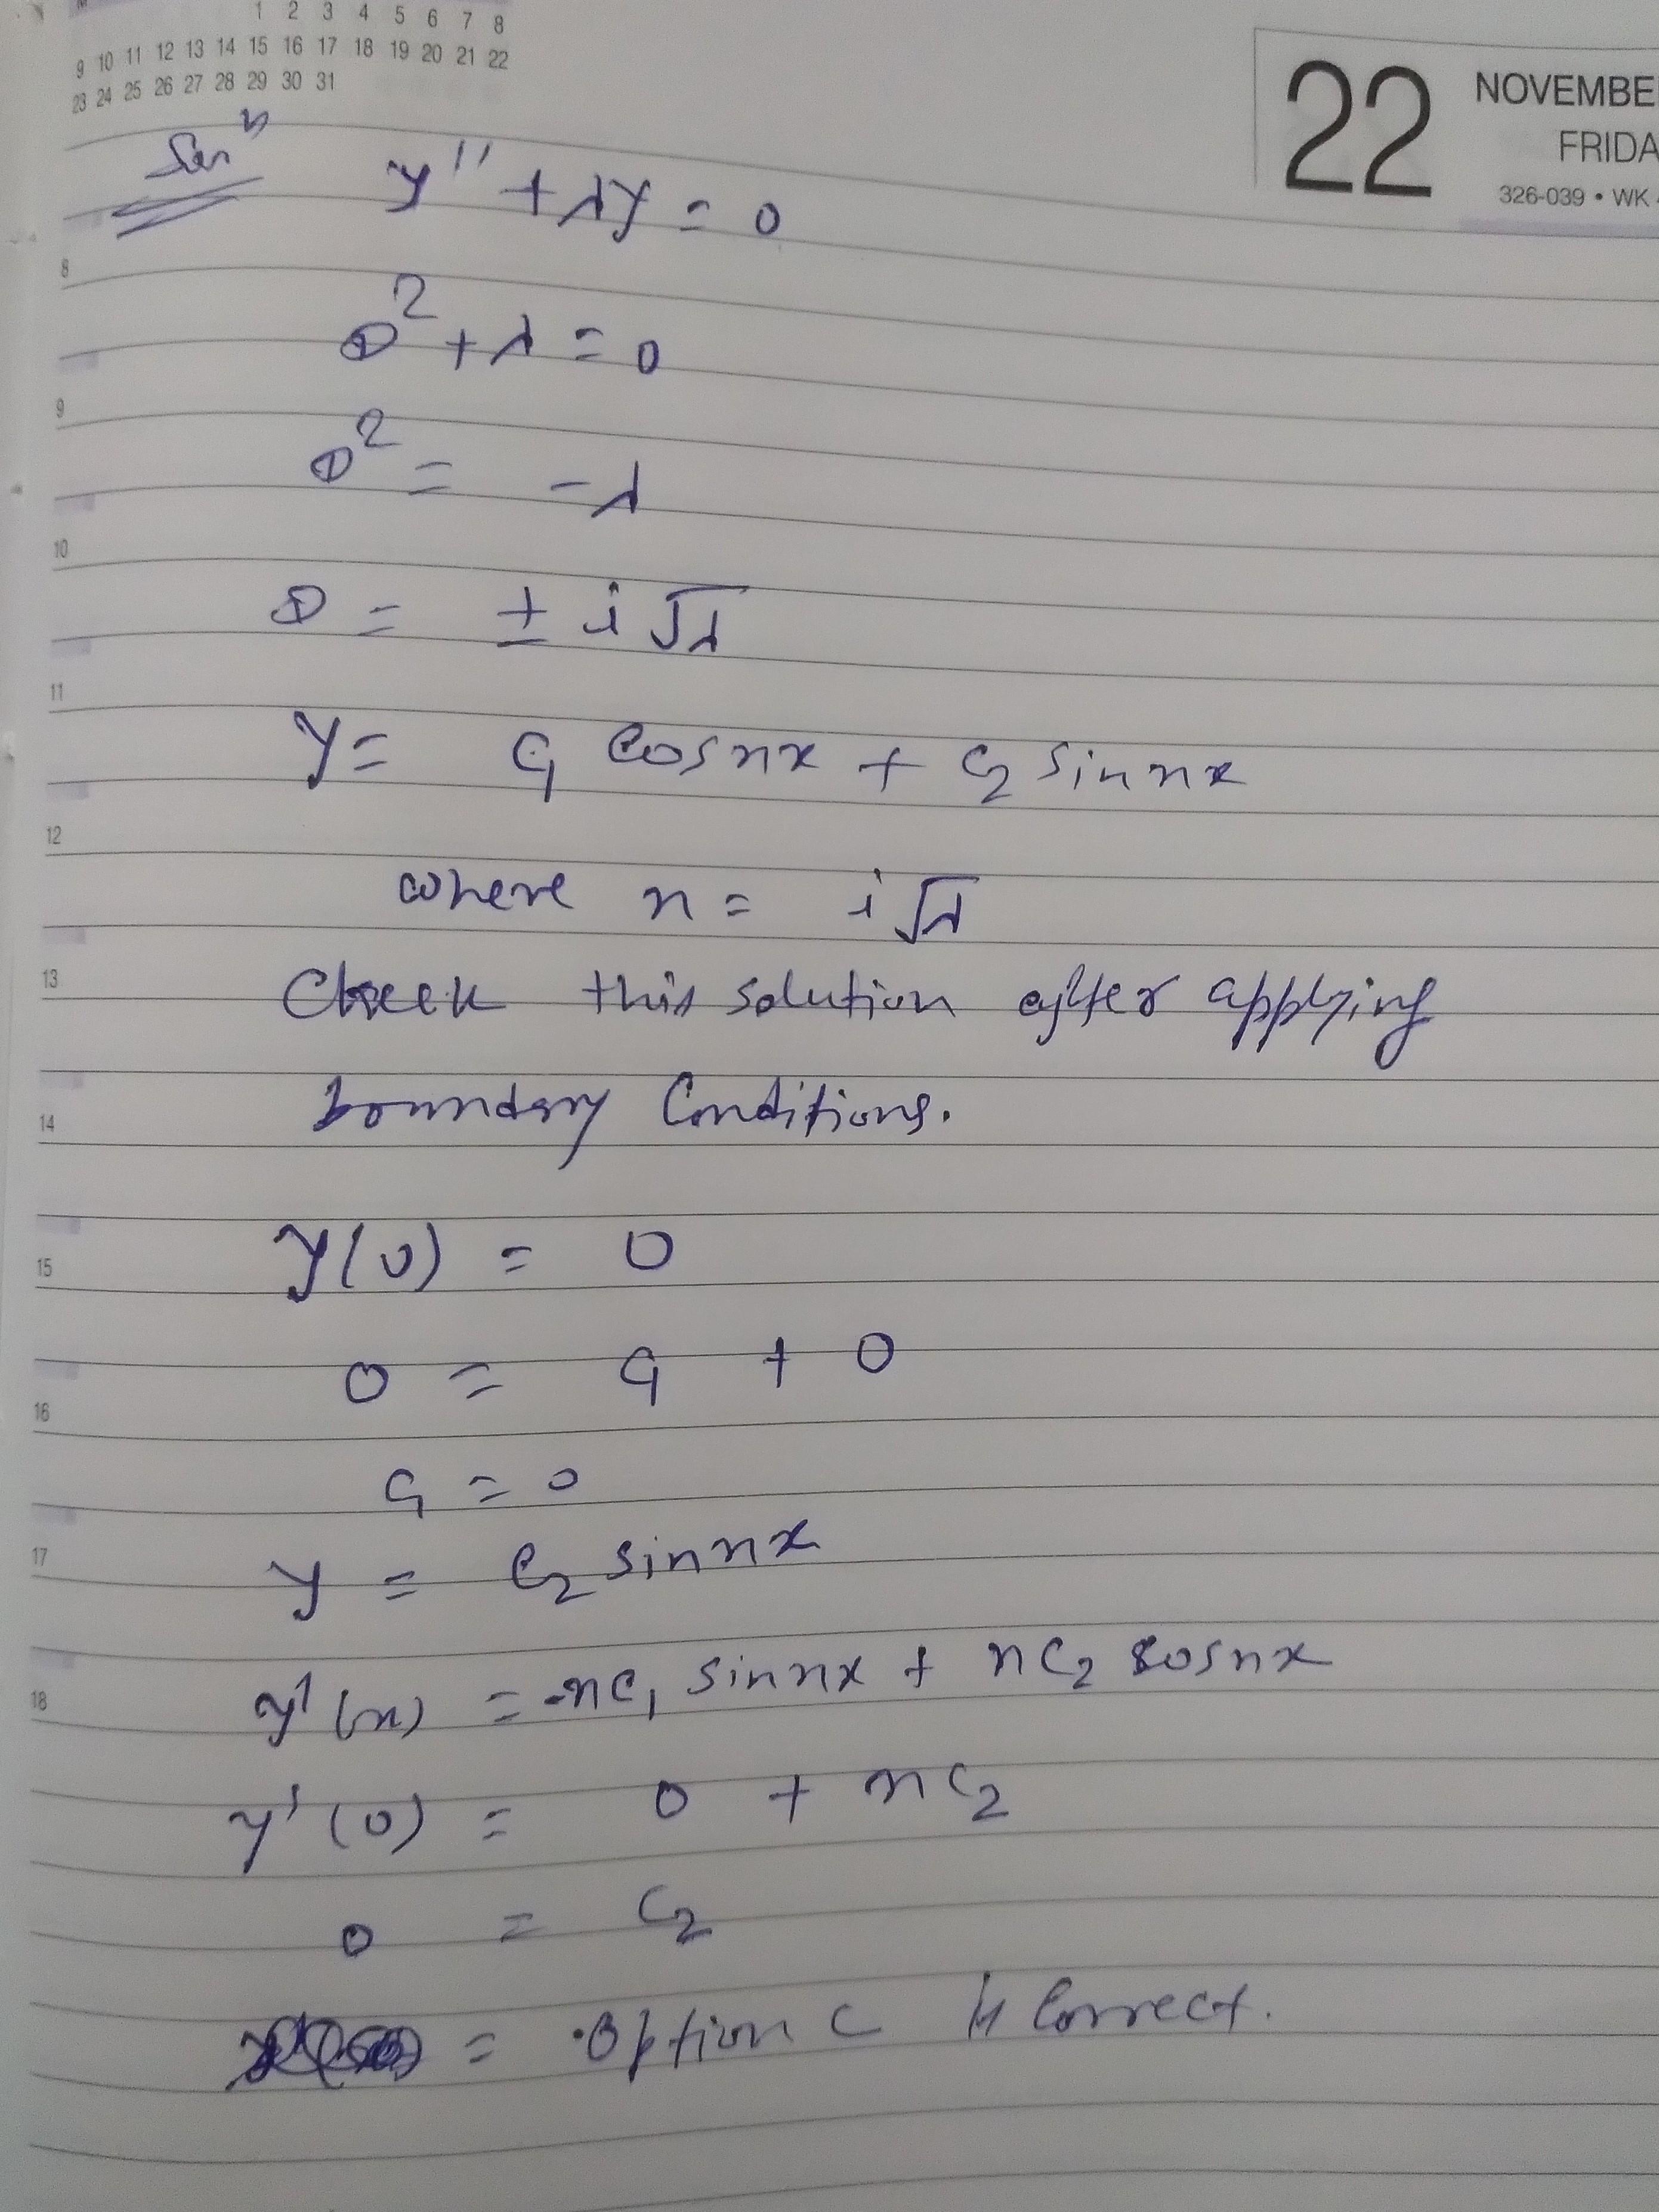 1 2 3 4 5 6 7 8
9 10 11 12 13 14 15 16 17 18 19 20 21 22
23 24 25 26 27 28 29 30 31
22 NOVEMBE
FRIDA
326-039 • WK
Solⁿ y'' + λy = 0
8
D² + λ = 0
9
D² = -λ
10
D = ± i√λ
11
y = C₁ cosnx + C₂ sinnx
12
where n = i√λ
13
Check this solution after applying
boundary Conditions.
14
y(0) = 0
15
0 = C₁ + 0
16
C₁ = 0
17
y = C₂ sinnx
y'(x) = -nC₁ sinnx + nC₂ cosnx
18
y'(0) = 0 + nC₂
0 = C₂
= Option C is Correct.